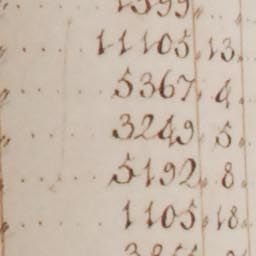 1399
" .... 11105 " 13 "
" .... 5367 " 4 "
" .... 3249 " 5 "
" .... 5192 " 8 "
" .... 1105 " 18 "